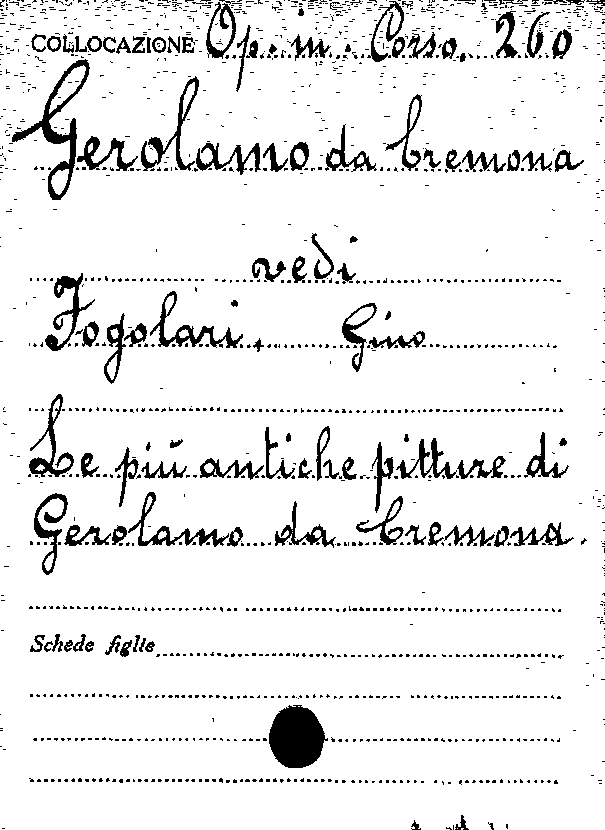 COLLOCAZIONE Op. in. Corso. 260
Gerolamo da Cremona
vedi
Fogolari, Gino
Le più antiche pitture di
Gerolamo da Cremona.
Schede figlie